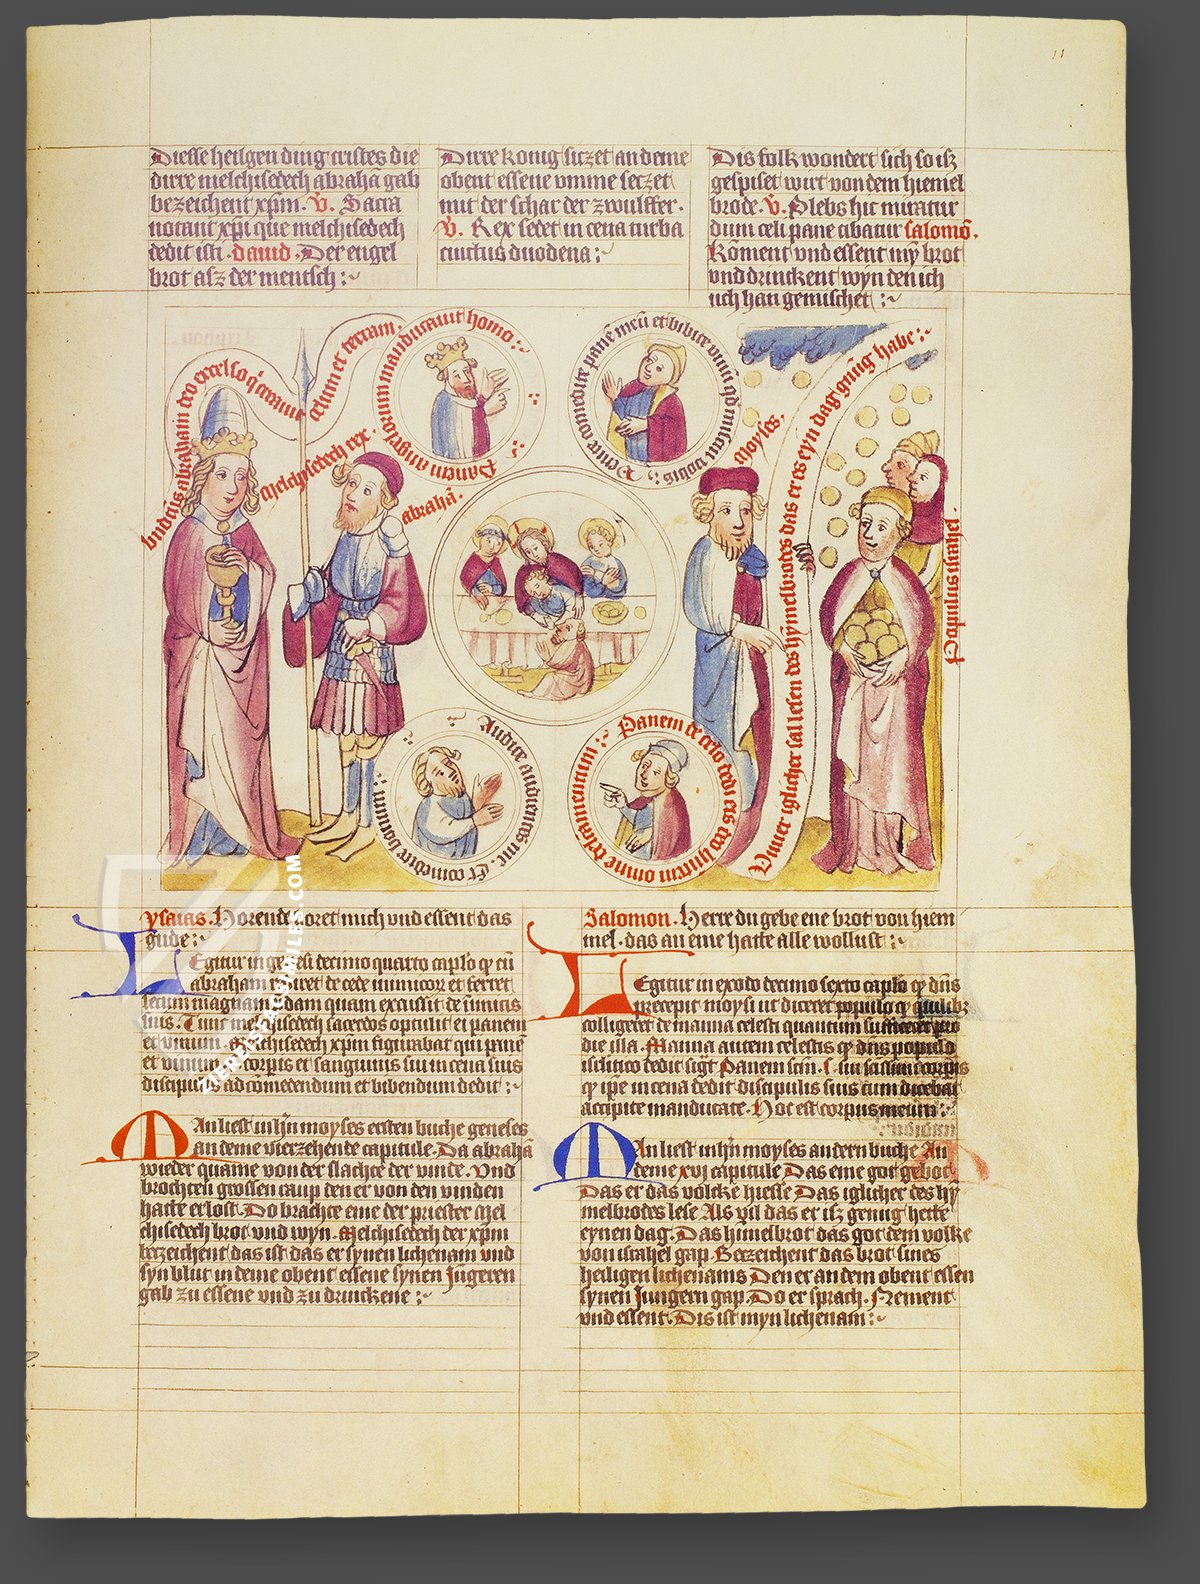 11
Diesse heilgen ding cristes die
dirre melchisedech abrahā gab
bezeichent xpm. V̄. Sacra
notant xpi que melchisedech
dedit isti. dauid. Der engel
brot asz der mentsch :~
Dirre konig siczet an deme
obent essene vmme seczet
mit der schar der zwulffer.
V̄. Rex sedet in cena turba
cinctus duodena :~
Dis folk wondert sich so isz
gespiset wirt von dem hiemel
brode. V̄. Plebs hic miratur
dum celi pane cibatur salomō.
Kōment vnd essent mȳ brot
vnd drinckent wyn den ich
uch han gemischet :~
bndcūs abraham deo excelso q̄ creauit celum et terram.
Melchisedech rex.
abrahā.
Panem angelorum manducauit homo :~
Venite comedite panē meū et bibite vinū qd miscui vobis :~
Moyses.
Vwer iglicher sal lesen des hȳmelbrodes das er es eyn dag gnūg habe :~
Populus israhel.
Audite audientes me. Et comedite bonum :~
Panem de celo dedi eis deo habentem omne delectamentum :~
ysaias. Horende horet mich vnd essent das
gude :~
Legitur in genesi decimo quarto caplo q̄ cū
abraham rediret de cede inimicor et ferret
secum magnam predam quam excussit de inimicis
suis. Tunc melchisedech sacerdos optulit ei panem
et vinum. Melchisedech xpm figurabat qui panē
et vinum. corpis et sanguinis sui in cena suis
discipulis ad comedendum et bibendum dedit :~
Man liest in hn moyses ersten buche geneses
an deme vierzehende capitule. Da abrahā
wieder quame von der slachte der vinde. Vnd
brochten grossen raup den er von den vinden
hatte erlost. Do brachte eme der priester Mel
chisedech brot vnd wyn. Melchisedech der xpm
bezeichent das ist das er synen lichenam vnd
syn blut in deme obent essene synen Jungeren
gab zu essene vnd zu drinckene :~
Salomon. Herre du gebe ene brot von hiem
mel. das an eme hatte alle wollust :~
Legitur in exodo decimo sexto caplo q̄ dn̄s
precepit moysi ut diceret populo q̄ quilibz
colligeret de manna celesti quantum sufficeret pro
die illa. Manna autem celestis q̄ dn̄s populo
isrlitico dedit sigt Panem scm. s. sui scissimi corpis
q̄ ipe in cena dedit discipulis suis cum dicebat
accipite manducate. Hoc est corpus meum :~
Man liest in hn moyses andern buche. An
deme xvj capitule Das eme got gebot
Das er das volcke hiesse Das iglicher des hȳ
melbrodes lese Als vil das er isz genug hette
eynen dag. Das himelbrot das got dem volke
von israhel gap. Bezeichent das brot sines
heiligen lichenams Den er an dem obent essen
synen Jungern gap. Do er sprach. Nement
vnd essent. Dis ist myn lichenam :~